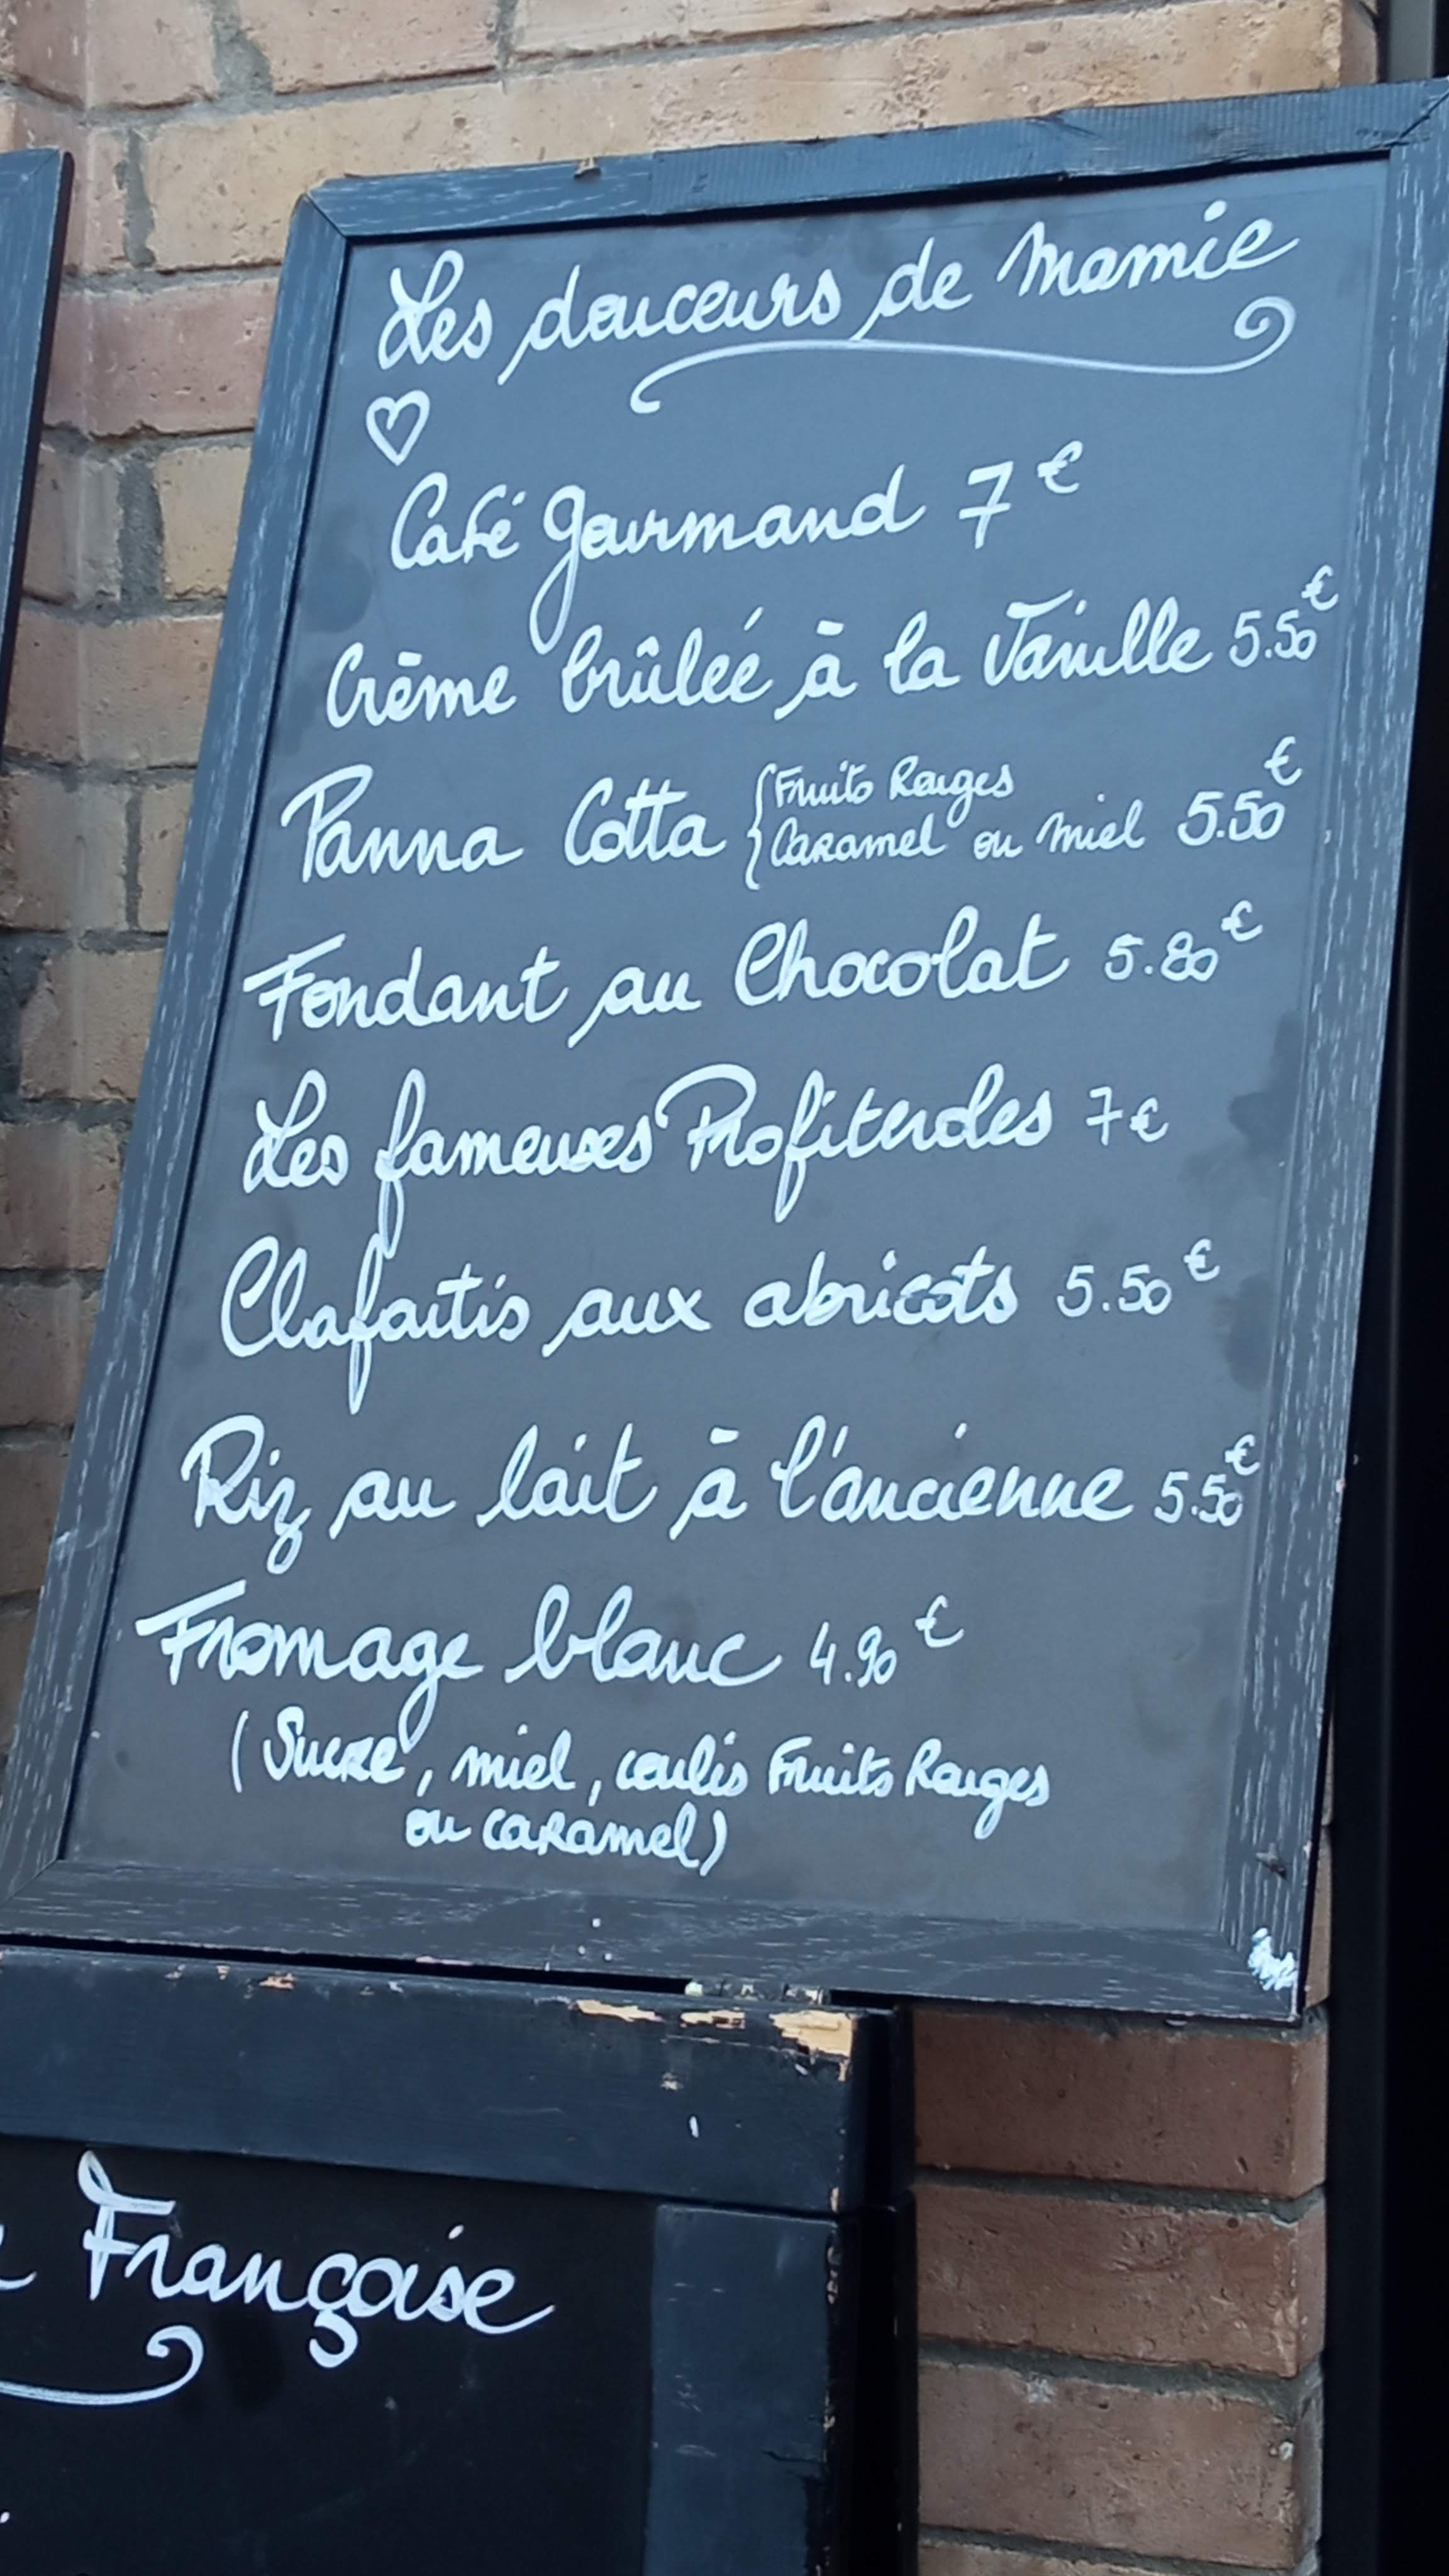 Les douceurs de Mamie
Café gourmand 7€
Crème brûlée à la Vanille 5.50€
Panna Cotta { Fruits Rouges
Caramel ou miel 5.50€
Fondant au Chocolat 5.80€
Les fameuses Profiteroles 7€
Clafoutis aux abricots 5.50€
Riz au lait à l'ancienne 5.50€
Fromage blanc 4.90€
(Sucre, miel, coulis Fruits Rouges
ou caramel)
Françoise